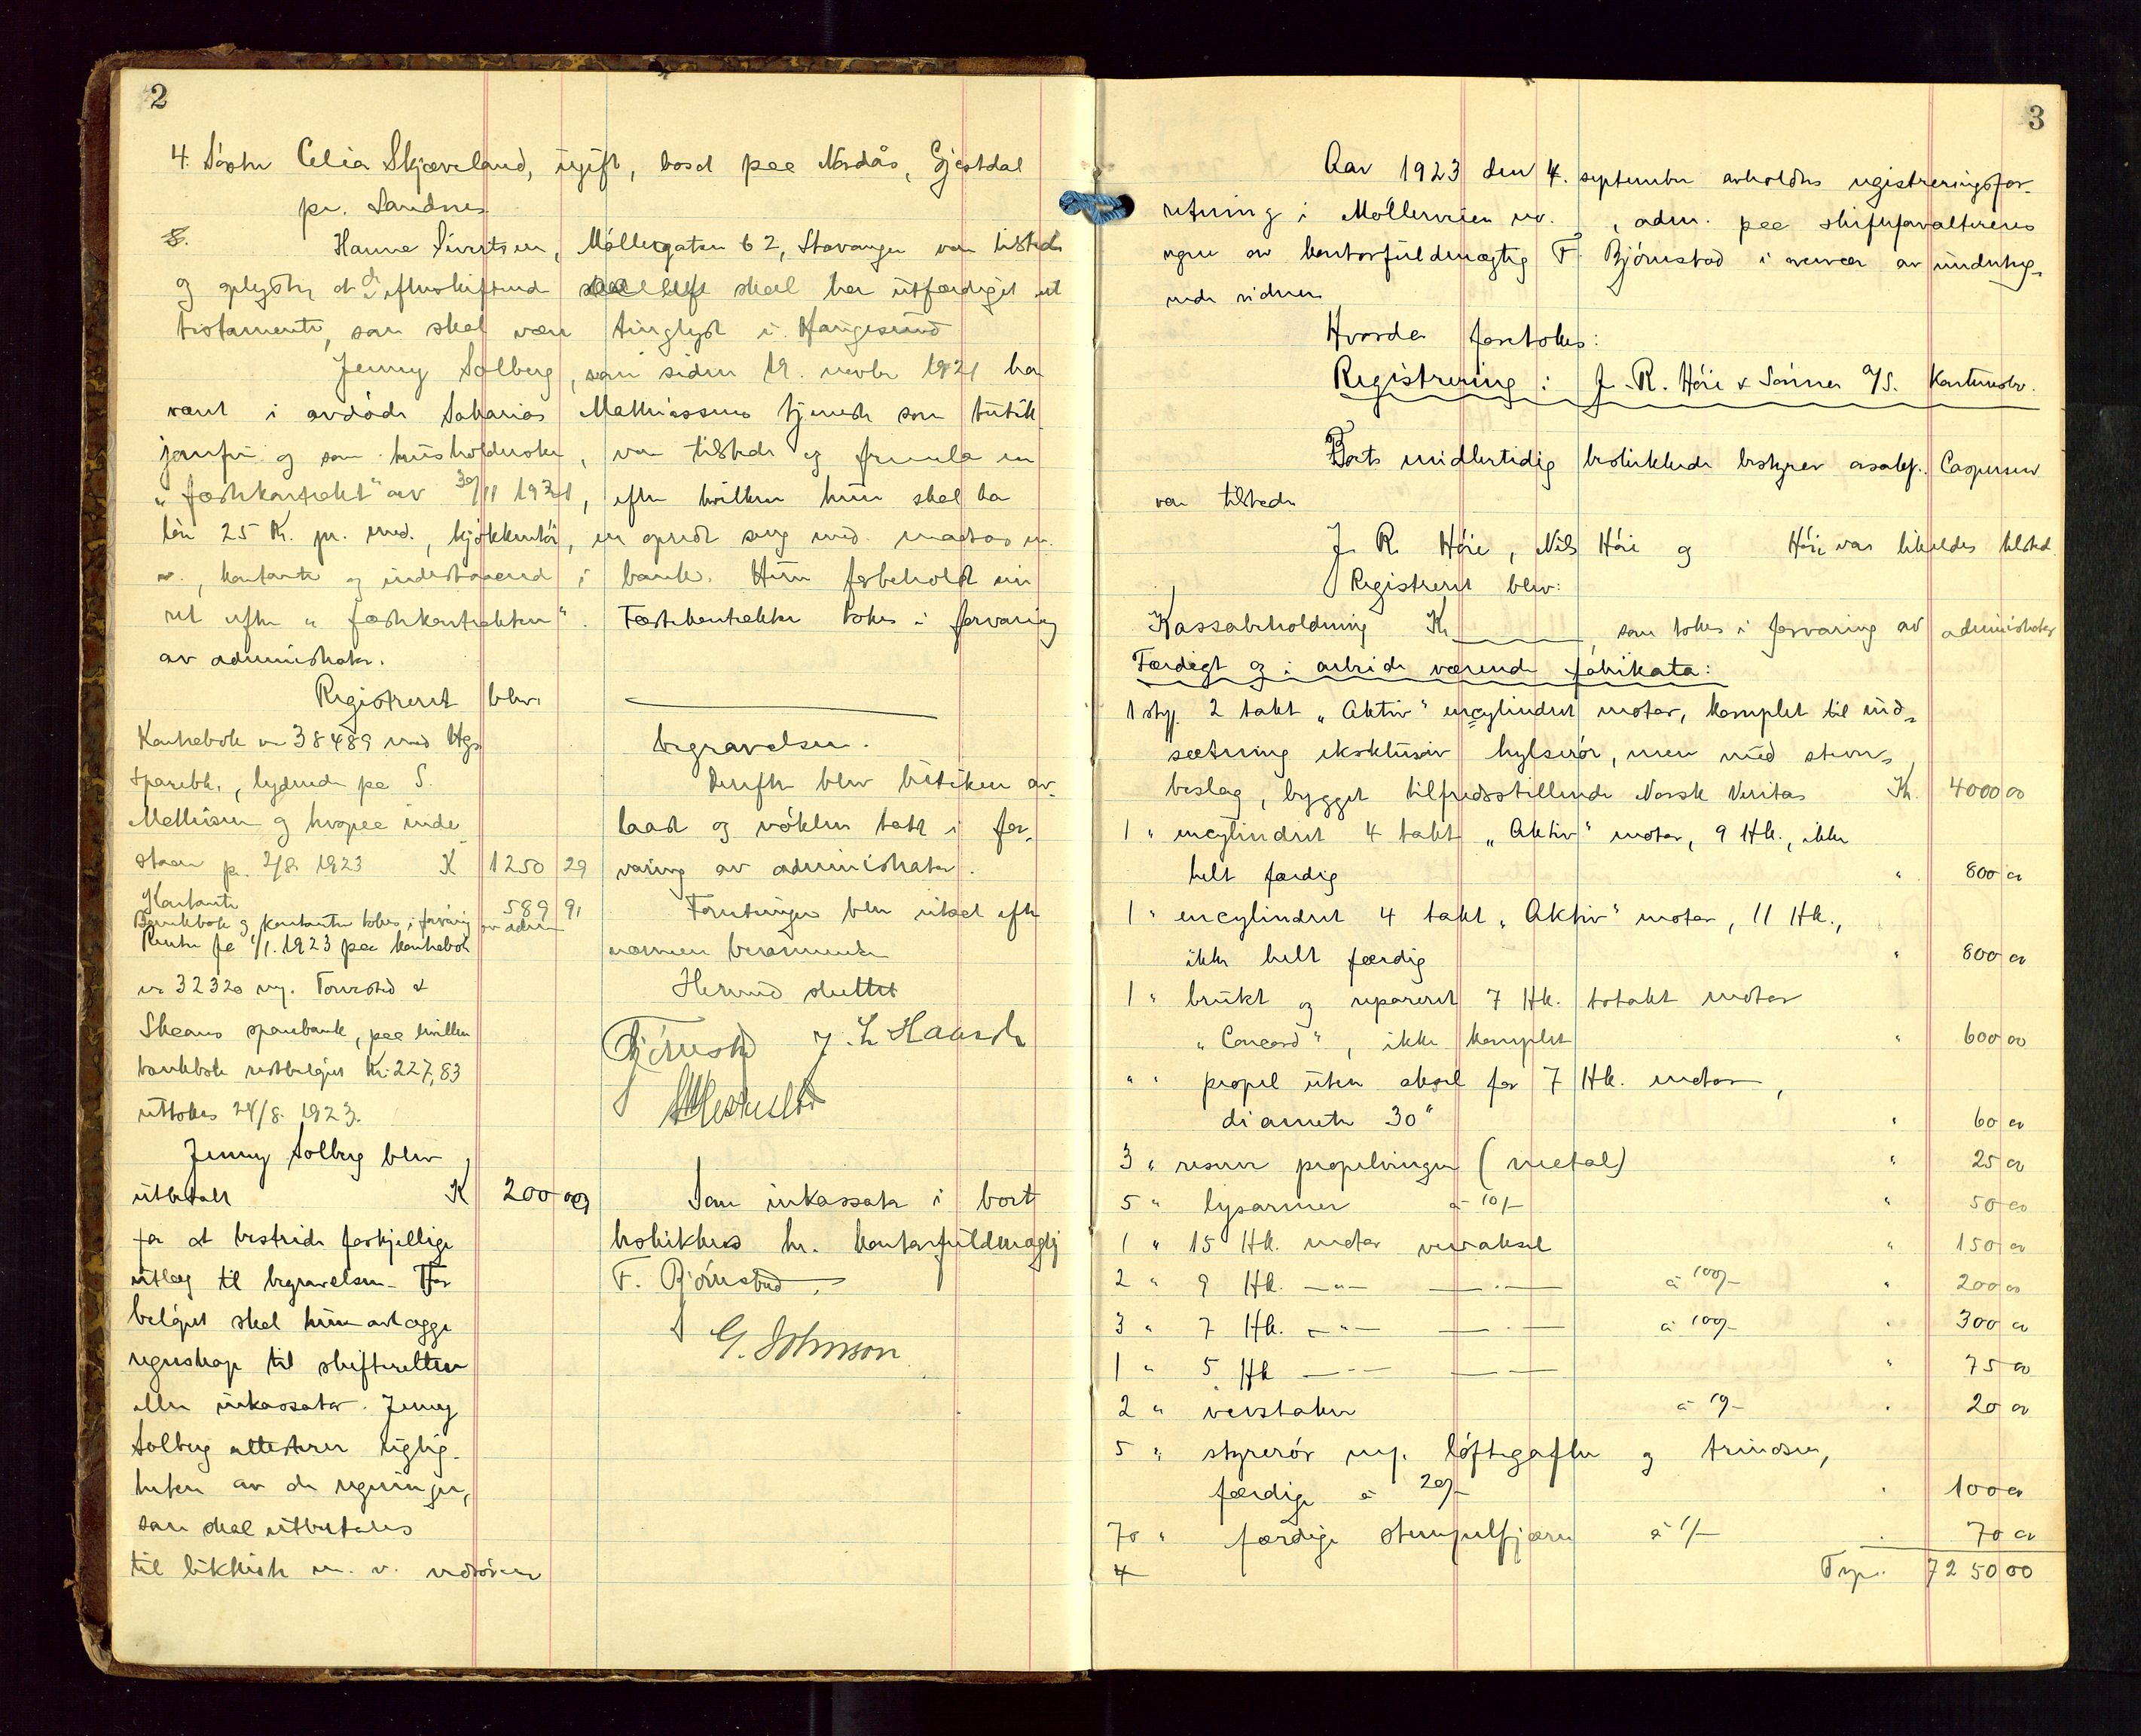 2
4. Søster Celia Skjæveland, ugift, bosat paa Nordås, Gjestdal
pr. Sandnes
Hanne Sivertsen, Møllegaten 62, Stavanger var tilstede
og oplyste at efterskiftende skal ha utfærdiget et
testamente, som skal være tinglyst i Haugesund
Jenny Solberg, som siden 19. novbr 1921 har
været i avdøde Sakarias Mathiassens tjeneste som butik-
jomfru og som husholderske, var tilstede og fremla en
"fæstekontrakt" av 30/11 1921, efter hvilken hun skal ha
løn 25 Kr. pr. mnd., kjøkkentøi, en opredt seng med madras m.
v., kontanter og indestaaende i bank. Hun forbeholdt sin
ret efter "fæstekontrakten". Fæstekontrakten tokes i forvaring
av administrator.
Registreret blev
Kontrabok nr 38489 med Hgs
sparebk., lydende paa S.
Mathiasen og hvorpaa inde-
staar pr. 2/8 1923 Kr 1250 29
Kontanter 589 91
Bankbok og kontanter tokes i forvaring av adm
Renter fra 1/1. 1923 paa kontrabok
nr 32320 Torvestad &
Skaare sparebank, paa hvilken
bankbok restbeløpet Kr. 227,83
uttokes 24/8. 1923.
Jenny Solberg blev
utbetalt Kr 200 00
for at bestride forskjellige
utlæg til begravelsen. For
beløpet skal hun avlægge
regnskap til skifteretten
eller inkassator. Jenny
Solberg attesterer rigtig-
heten av de regninger,
som skal utbetales
til likkiste m. v. vedrørende
begravelsen.
Derefter blev butikken av-
laast og nøklen tatt i for-
varing av administrator.
Forretningen blev utsat efter
nærmere berammelse
Hermed sluttet
Bjørnstad J. L. Haaseth
Som inkassator i boet
beskikkes hr. kontorfuldmægtig
F. Bjørnstad.
G. Johnson
3
Aar 1923 den 4. september avholdtes registreringsfor-
retning i Møllerveien nr. , adm. paa skifteforvalterens
vegne av kontorfuldmægtig F. Bjørnstad i nærvær av underteg-
nede vidner
Hvorda foretokes:
Registrering i J. R. Høie & Sønner A/S. Konkursbo.
Boets midlertidig beskikkede bestyrer o.r.sakf. Caspersen
var tilstede
J. R. Høie, Nils Høie og Høie var likeledes tilstede.
Registreret blev:
Kassabeholdning Kr , som tokes i forvaring av administrator
Færdigt og i arbeide værende fabrikata:
1 stk. 2 takt "Aktiv" encylindret motor, komplet til ind-
sætning eksklusiv hylserør, men med stevn-
beslag, bygget tilfredsstillende Norsk Veritas Kr. 4000 00
1 " encylindret 4 takt "Aktiv" motor, 9 Hk., ikke
helt færdig " 800 00
1 " encylindret 4 takt "Aktiv" motor, 11 Hk.,
ikke helt færdig " 800 00
1 " brukt og reparert 7 Hk. totakt motor
"Concord", ikke komplet " 600 00
" " propel uten aksel for 7 Hk. motor,
diameter 30" " 60 00
3 " reserve propelvinger (metal) " 25 00
5 " lysarmer à 10/- " 50 00
1 " 15 Hk. motor veivaksel " 150 00
2 " 9 Hk. —"— —"— à 100/- " 200 00
3 " 7 Hk. —"— —"— à 100/- " 300 00
1 " 5 Hk —"— —"— " 75 00
2 " veivstaker à 10/- " 20 00
5 " styrerør m. løftegafler og trindser,
færdige à 20/- " 100 00
70 " færdige stempelfjærer à 1/- " 70 00
Trp. 7250 00